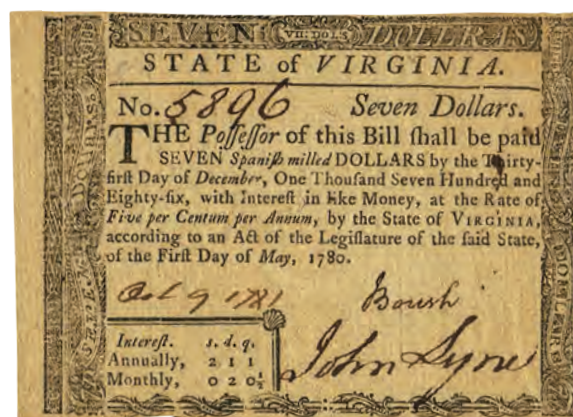 SEVEN VII: DOL'S DOLLRAS
STATE of VIRGINIA.
No. 5896 Seven Dollars.
THE Poſſeſſor of this Bill ſhall be paid
SEVEN Spaniſh milled DOLLARS by the Thirty-
firſt Day of December, One Thouſand Seven Hundred and
Eighty-ſix, with Intereſt in like Money, at the Rate of
Five per Centum per Annum, by the State of VIRGINIA,
according to an Act of the Legiſlature of the ſaid State,
of the Firſt Day of May, 1780.
Oct 9 1781 Boush
Intereſt. s. d. q.
Annually, 2 1 1
Monthly, 0 2 0½
John Lyne